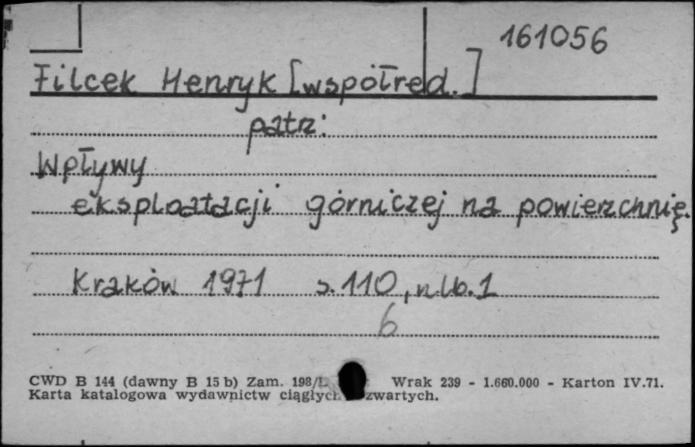 161056
Filcek Henryk [współred.]
patrz:
Wpływy
eksploatacji górniczej na powierzchnię.
Kraków 1971 s. 110, nlb. 1
6
CWD B 144 (dawny B 15 b) Zam. 198/ Wrak 239 - 1.660.000 - Karton IV.71.
Karta katalogowa wydawnictw ciągłych zwartych.